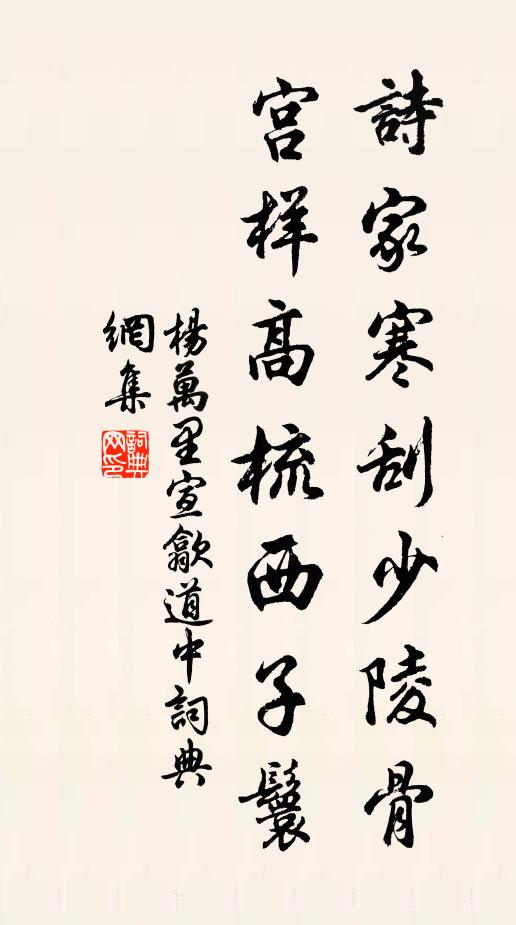 詩家寒刮少陵骨
宫样高梳西子鬟
楊萬里宣歙道中詞典
網集
詞典网印